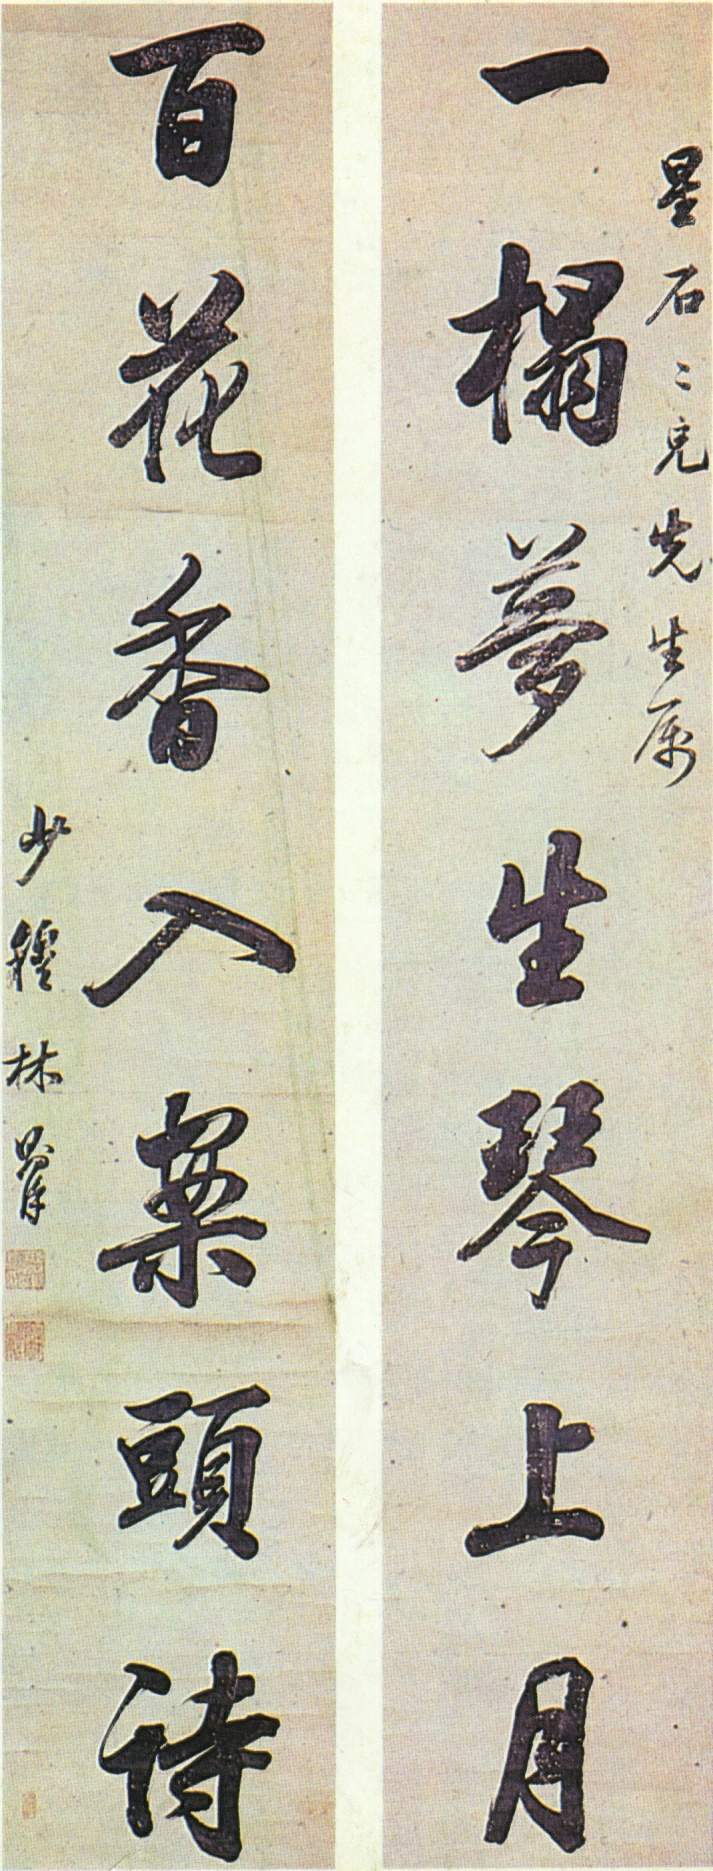 星石二兄先生属
一榻夢生琴上月
百花香入案頭诗
少穆林